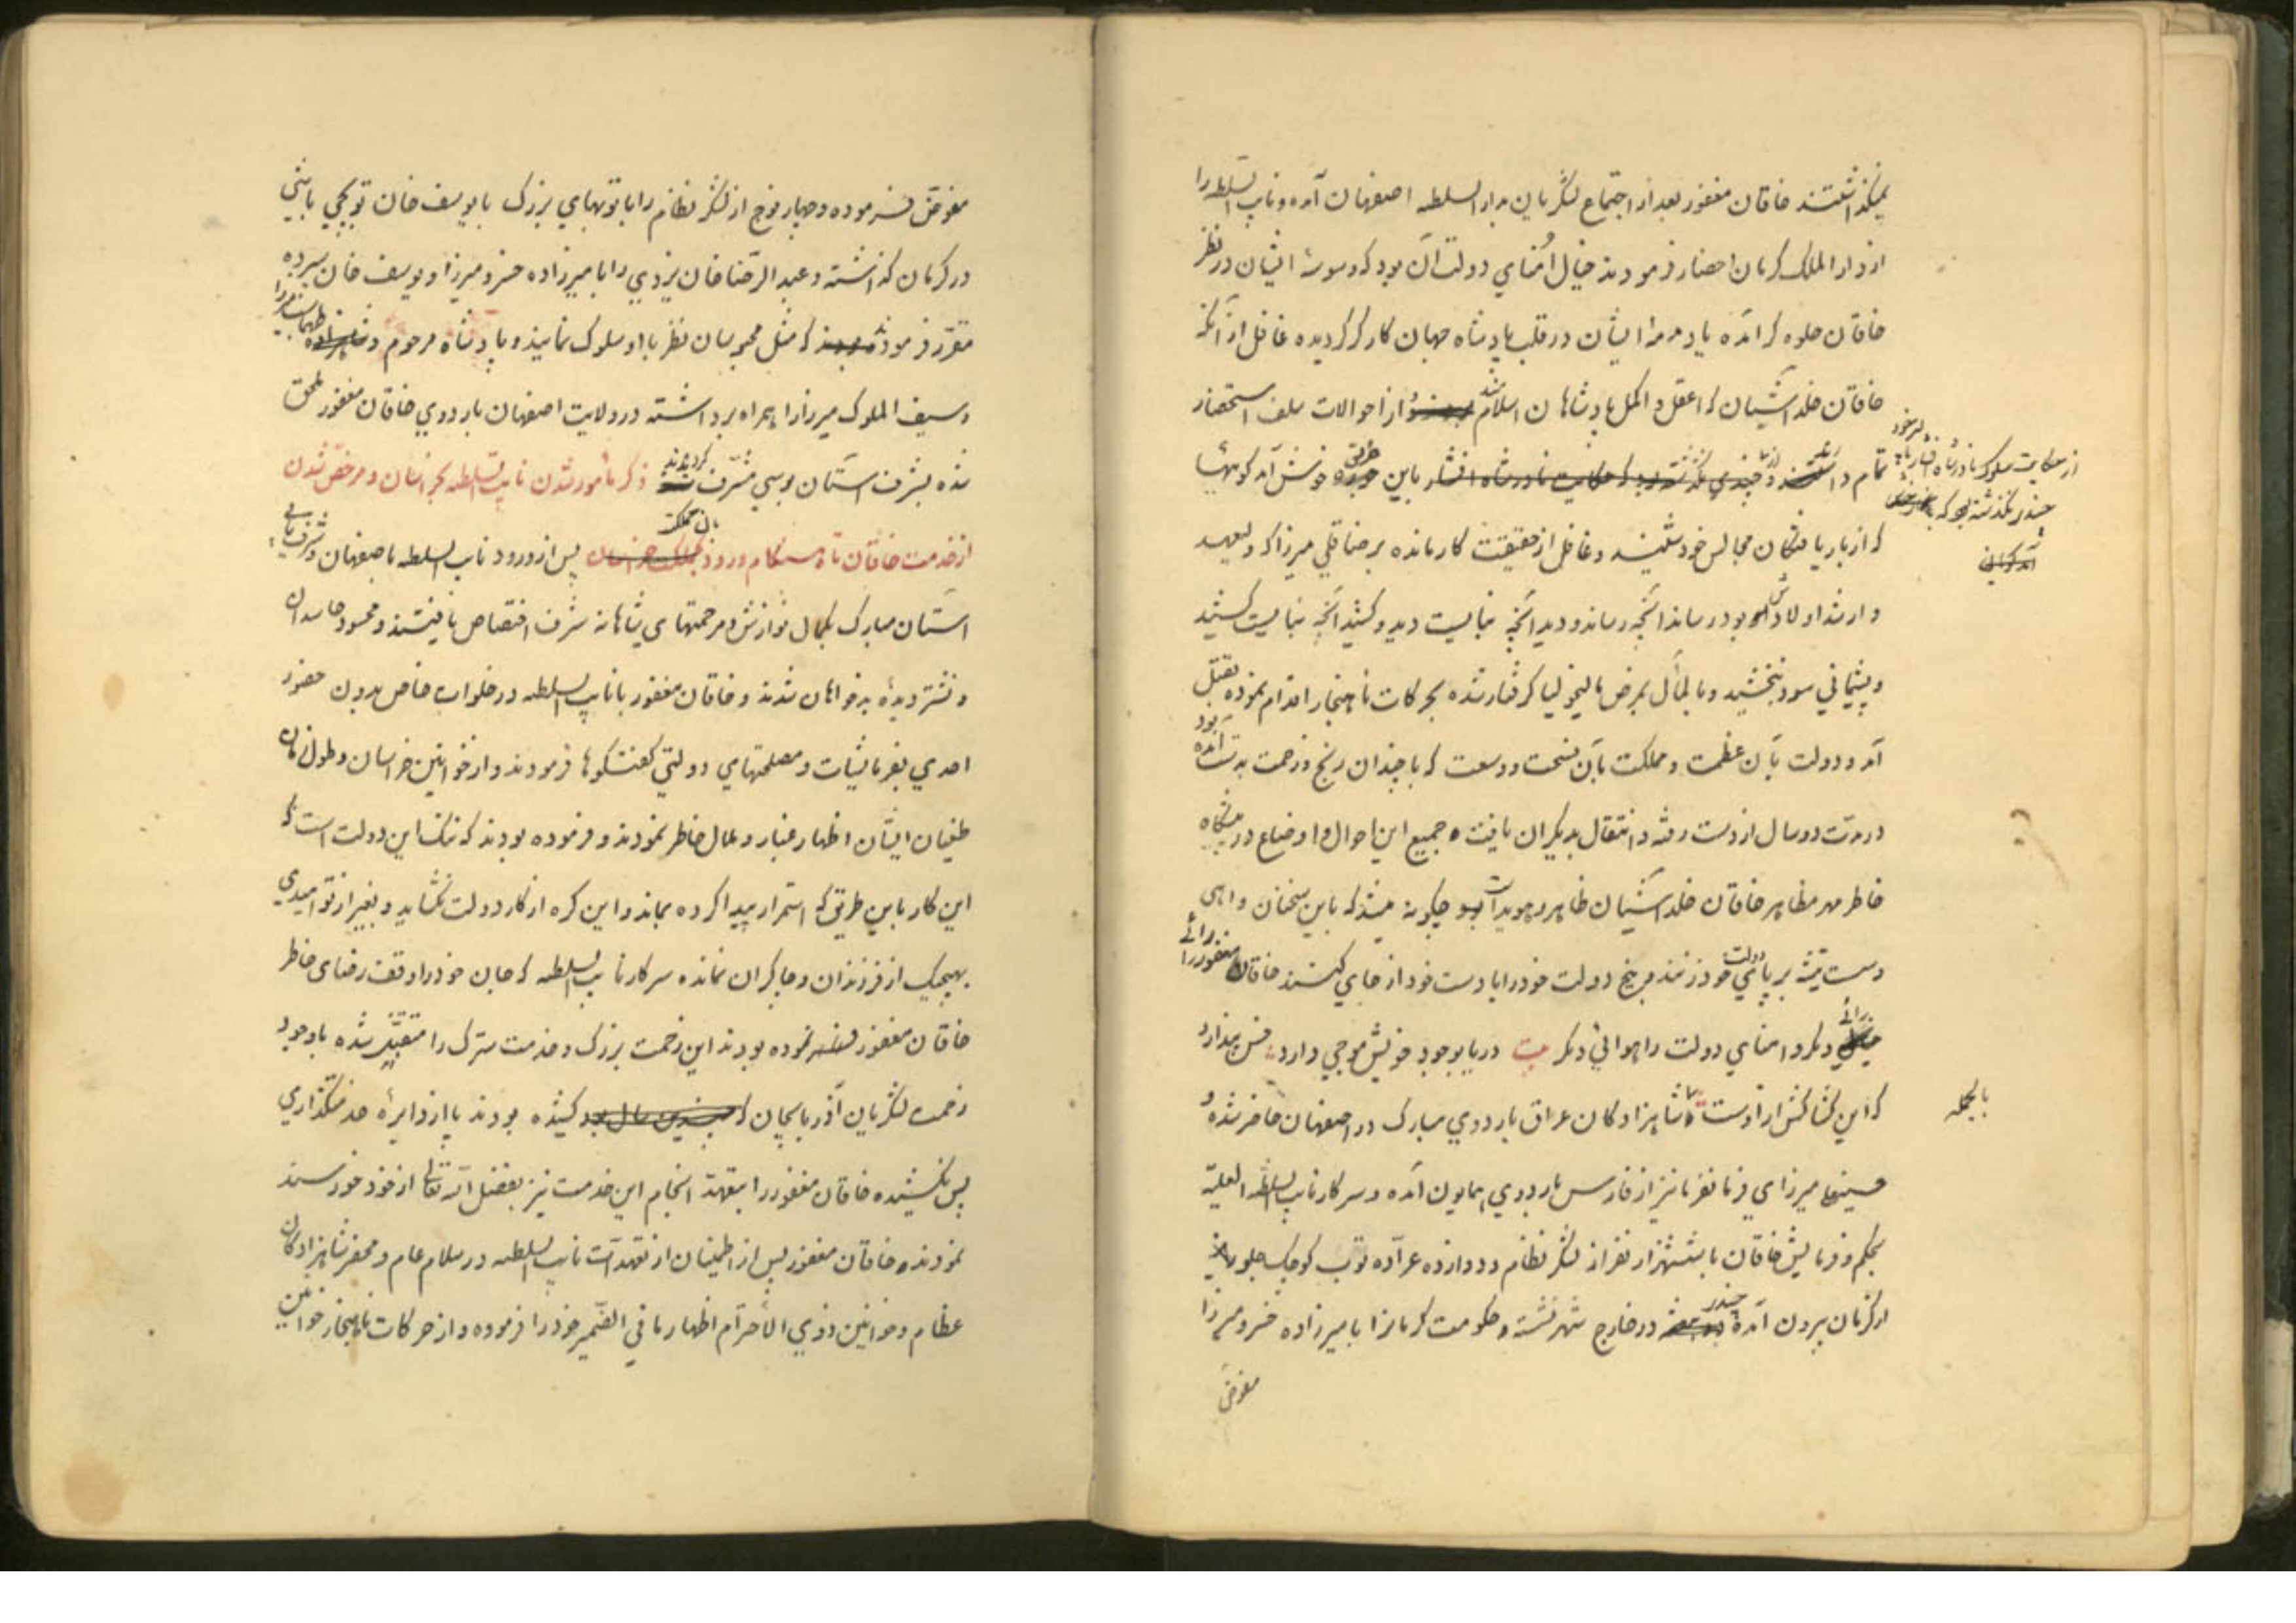 میگذاشتند خاقان مغفور بعد از اجتماع لشگریان بدار السلطه اصفهان آمده و نایب السلطه را
از دار الملک کرمان احضار فرمودند خیال اُمنای دولت آن بود که وسوسهٔ ایشان در نظر
خاقان جلوه گر آمده یا دمدمهٔ ایشان در قلب پادشاه جهان کارگر گردیده غافل از آنکه
خاقان خلد آشیان که اعقل و اکمل پادشاهان اسلامند از احوالات سلف استحضار
تمام داشتند و چندی نگذشته بود که حکایت نادرشاه افشار باین خوش آمد گوئیها
از حکایت سلوک نادرشاه افشار با پسر خود
چندی نگذشته بود که
که از باریافتگان مجالس خودشیند و غافل از حقیقت کار مانده برضاقلی میرزا که ولیعهد
و ارشد اولادش بود رساند آنچه رساند و دید آنچه نبایست دید و کشید آنچه نبایست کشید
و پشیمانی سود نبخشید و بالمآل بمرض مالیخولیا گرفتار شده بحرکات ناهنجار اقدام نموده بقتل
آمد و دولت بآن عظمت و مملکت بآن فسحت و وسعت که با چندان رنج و زحمت بدست آمده بود
در مدت دو سال از دست رفته و انتقال بدیگران یافت و جمیع این احوال و اوضاع در پیشگاه
خاطر مهر مظاهر خاقان خلد آشیان ظاهر و هویدا بود چگونه میشد که باین سخنان واهی
دست تیشه بر پای دولت خود زنند و بیخ دولت خود را با دست خود از جای کنند خاقان مغفور را رائی
دیگر و امنای دولت را هوائی دیگر بیت دریا بوجود خویش موجی دارد خس پندارد
که این کشاکش از اوست شاهزادگان عراق باردوی مبارک در اصفهان حاضر شده و
بالجمله
حسینعلی میرزای فرمانفرما نیز از فارس باردوی همایون آمده و سرکار نایب السلطه العلیّه
بحکم و فرمایش خاقان با ششهزار نفر از لشگر نظام و دوازده عرّاده توپ کوچک جلو
از کرمان بیرون آمده در خارج شهر نشسته و حکومت کرمانرا بامیرزاده خسرو میرزا
مفوض
مفوض فرموده و چهار فوج از لشگر نظام را با توپهای بزرک با یوسف خان توپچی باشی
در کرمان گذاشته و عبد الرضا خان یزدی را بامیرزاده خسرو میرزا و یوسف خان سپرده
مقرر فرمودند که مثل محبوسان نظر با او سلوک نمایند و پادشاه مرحوم و طهماسب میرزا
و سیف الملوک میرزا را همراه برداشته در ولایت اصفهان باردوی خاقان مغفور ملحق
شده بشرف آستان بوسی مشرّف گردیدند ذکر مأمور شدن نایب السلطه بخراسان و مرخص شدن
از خدمت خاقان تا هنگام ورود بآن مملکت پس از ورود نایب السلطه باصفهان و شرفیابی
آستان مبارک بکمال نوازش و مرحمتهای شاهانه شرف اختصاص یافتند و محسود حاسدان
و نشتر دیدهٔ بدخواهان شدند و خاقان مغفور با نایب السلطه در خلوات خاص بدون حضور
احدی بفرمایشات و مصلحتهای دولتی گفتگوها فرمودند و از خوانین خراسان و طول زمان
طغیان ایشان اظهار غبار و ملال خاطر نمودند و فرموده بودند که ننک این دولت است که
این کار باین طریق که استمرار پیدا کرده بماند و این گره از کار دولت نگشاید و بغیر از تو امیدی
بهیچیک از فرزندان و چاکران نمانده سرکار نایب السلطه که جان خود را وقف رضای خاطر
خاقان مغفور نموده بودند این زحمت بزرک و خدمت سترک را متقبّل شده باوجود
زحمت لشگریان آذربایجان که کشیده بودند پا از دایرهٔ خدمتگذاری
پس نکشیده خاقان مغفور را بتعهد انجام این خدمت نیز بفضل الله تعالی از خود خورسند
نمودند و خاقان مغفور پس از اطمینان از تعهدات نایب السلطه در سلام عام و محضر شاهزادگان
عظام و خوانین ذوی الأحترام اظهار ما فی الضمیر خود را فرموده و از حرکات ناهنجار خوانین